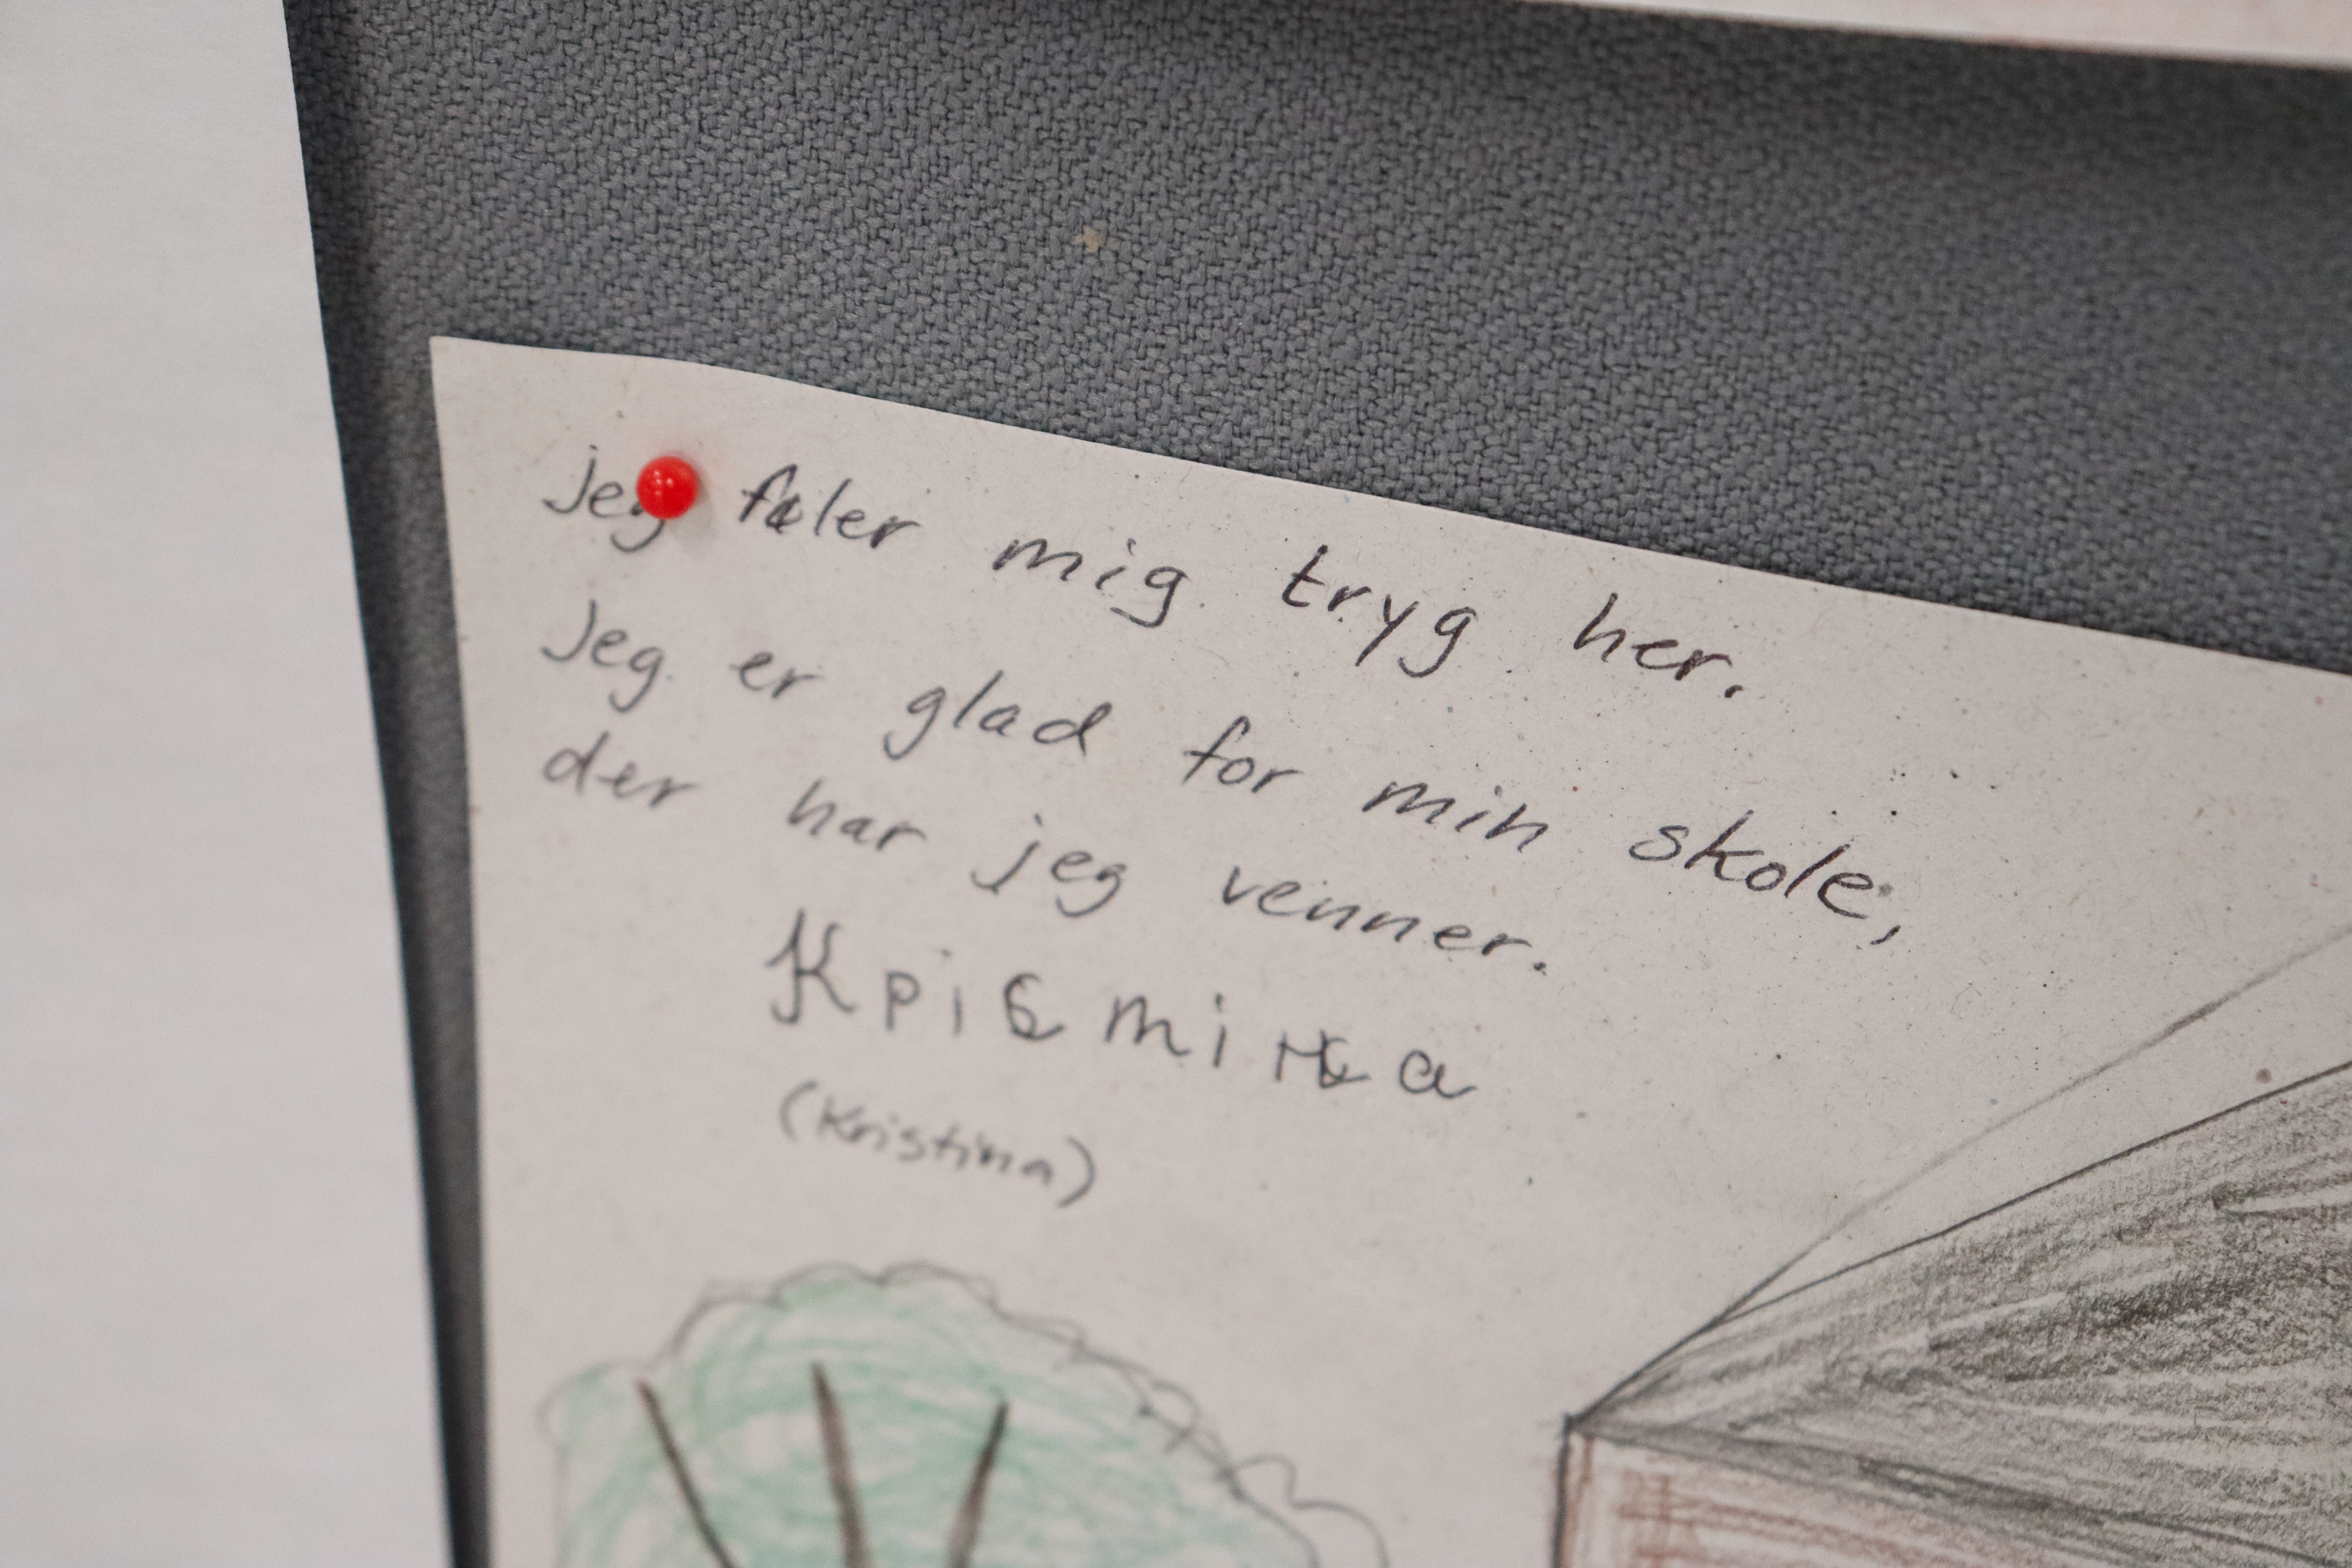 jeg føler mig tryg her.
Jeg er glad for min skole,
der har jeg venner.
Крiстiна
(Kristina)